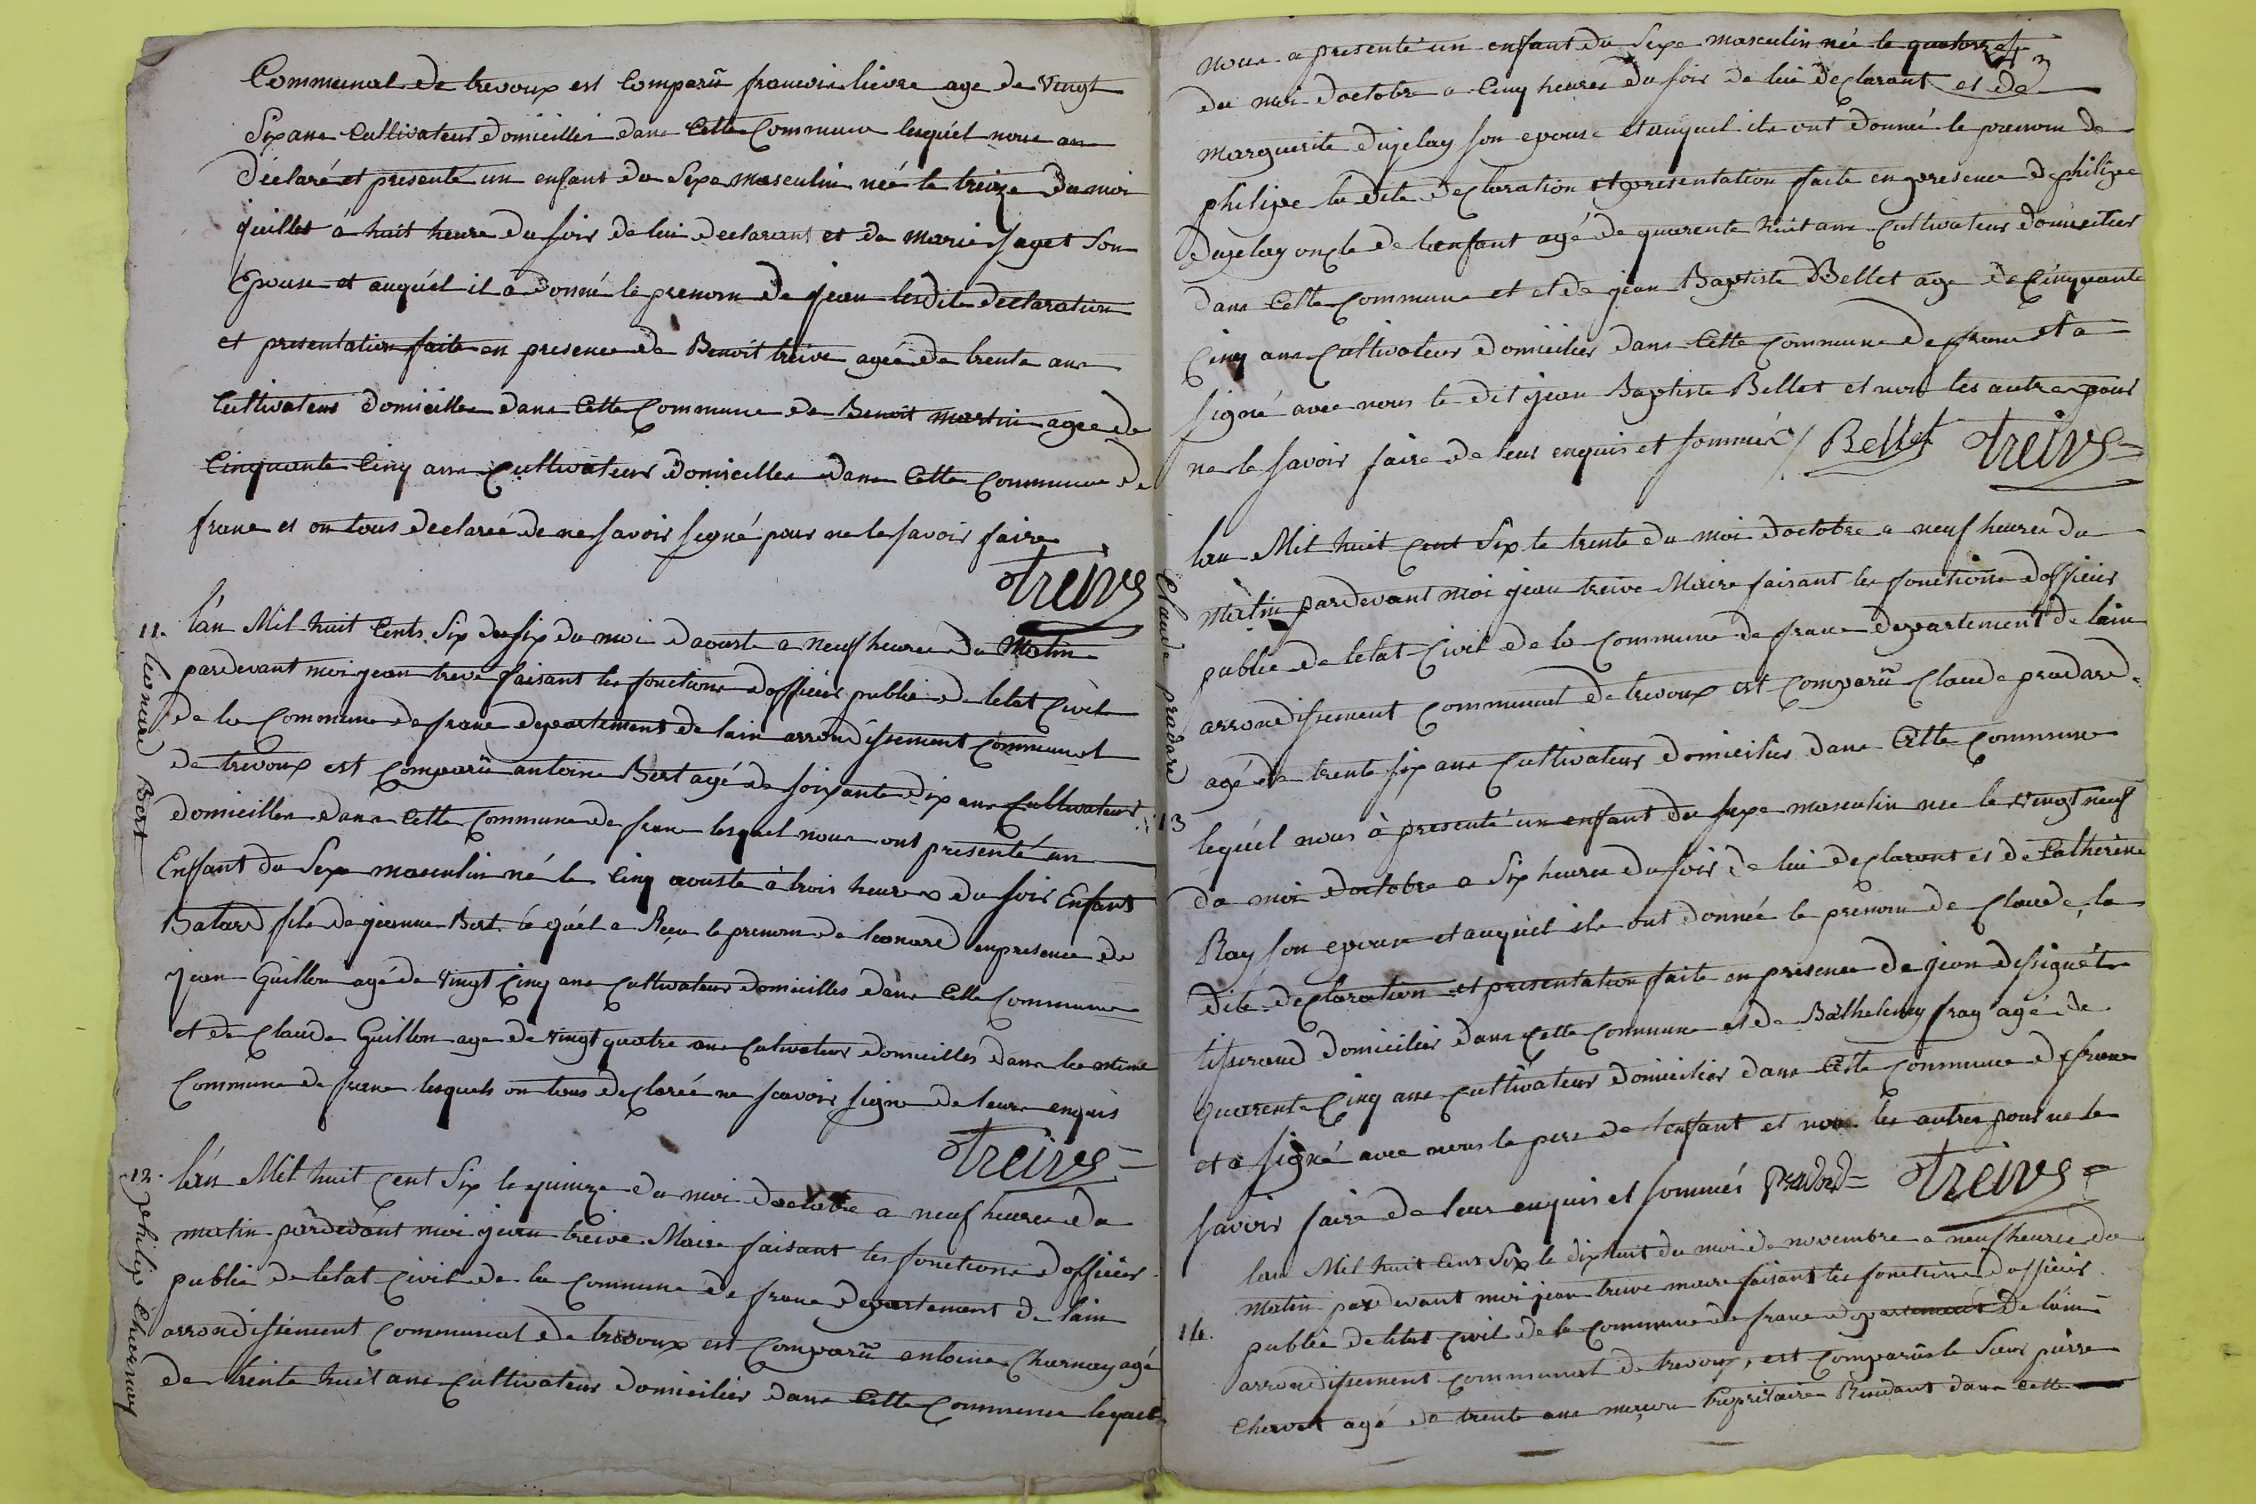 Communal de trevoux est Comparû francois lievre age de vingt
Six ans Cultivateur domicillier dans Cette Commune lequél nous an
déclaré et presenté un enfant du Sexe masculin née le treize du moi
juillet á huit heure du soir de lui declarant et de marie saget Son
Epouse et auquél il a donné le prenom de jean lesdite declaration
et presentation faite en presence de Benoit treive agée de trente ans
Cultivateur domicillier dans Cette Commune de Benoit martin agée de
Cinquante Cinq ans Cultivateur domicillier dans Cette Commune de
frans et on tous declareé de ne savoir signé pour ne le savoir faire
Treive
11. leonard Bert
lán Mil huit Cents Six du six du moi daouste a neuf heures du Matin
pardevant moi jean treve faisant les fonctions dofficiér public de letat Civil
de la Commune de frans departement de lain arrondissement Communal
de trevoux est Comparû antoine Bert agé de soixante dix ans Cultivateur
domicillier dans Cette Commune de frans lesquel nous ont presenté un
Enfant du Sexe masculin né le Cinq aouste à trois heures du soir Enfant
Batard fils de jeanne Bert le quél a Reçu le prenom de leonard en presence de
jean Guillon agé de vingt Cinq ans Cultivateur domicilles dans Cette Commune
et de Claude Guillon age de vingt quatre ans Cultivateur domicilles dans la même
Commune de frans lesquels on tous declareé ne scavoir signe de leurs enquis
Treive
12. philipe Chernay
lán Mil huit Cent Six le quinze du moi doctobre a neuf heures du
matin pardevánt moi jean treive Maire faisant les fonctions dofficiér
public de letat Civil de la Commune de frans departement de lain
arrondissement Communal de trevoux est Comparû antoine Charnay agé
de trente huit ans Cultivateur domicilier dans Cette Commune lequel
nous a presenté un enfant du Sexe masculin née le quatorze
du moi doctobre a Cinq heures du soir de lui declarant et de
marguerite dujelay son epouse et auquel ils ont donné le prenom de
philipe la dite declaration et presentation faite en presence de philipe
dujelay oncle de lenfant agé de quarente huit ans Cultivateur domicilier
dans Cette Commune et et de jean Baptiste Bellet age de Cinquante
Cinq ans Cultivateur domicilier dans Cette Commune de frans et a
signé avec nous le dit jean Baptiste Bellet et non les autres pour
ne le savoir faire de leur enquis et sommés Bellet Treive
Claude pradard
13
lan Mil huit Cent Six le trente du moi doctobre a neuf heures du
Matin pardevant moi jean treive Maire faisant les fonctions dofficiér
public de letat Civil de la Commune de frans departement de lain
arrondissement Communal de trevoux est Comparû Claude pradard
agé de trente six ans Cultivateur domicilier dans Cette Commune
lequél nous à presenté un enfant du sexe masculin née le vingt neuf
du moi doctobre a Six heures du soir de lui declarant et de Catherine
Ray son epouse et auquél ils ont donnée le prenom de Claude, la
dite declaration et presentation faite en presence de jean
tisserand domicilier dans Cette Commune et de Bathelemy fray agé de
quarente Cinq ans Cultivateur domicilier dans Cette Commune de frans
et a signé avec nous le pere de lenfant et non les autres pour ne le
savoir faire de leur enquis et sommés Pradard Treive
14.
lan Mil huit Cent Six le dixhuit du moi de novembre a neuf heures du
Matin pardevant moi jean treive maire faisant les fonctions dofficiér
public de letat Civil de la Commune de frans departement de lain
arrondissement Communal de trevoux, est Comparû le Sieur piérre
Chervet agé de trente ans propriétaire Résidant dans Cette